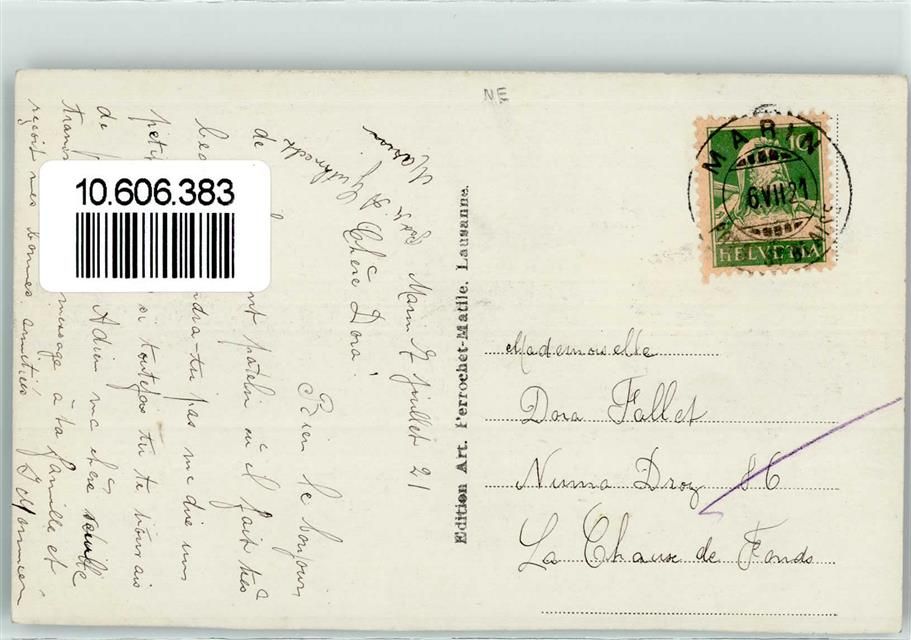 NE
MARIN
6.VII.21
10
HELVETIA
10.606.383
Marin 7 juillet 21
Chère Dora!
Bien le bonjour
de nt patelin où il fait très
bea ndra-tu pas me dire un
petit si toutefois tu te
de Adieu ma chère
trans message à ta famille et
reçoit mes bonnes amitiés
Edition Art. Perrochet-Matile. Lausanne.
Mademoiselle
Dora Fallet
Numa Droz 86
La Chaux de Fonds